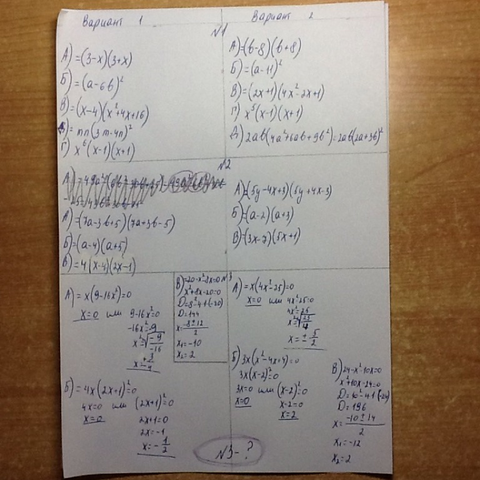 Вариант 1
Вариант 2
№1
А) =(3-x)(3+x)
Б) =(a-6b)²
В) =(x-4)(x²+4x+16)
=mn(3m-4n)²
Г) x²(x-1)(x+1)
А) =(b-8)(b+8)
Б) =(a-11)²
В) =(2x+1)(4x²-2x+1)
Г) x³(x-1)(x+1)
№2
А) =(7a-3b+5)(7a+3b-5)
Б) =(a-4)(a+5)
В) =4(x-4)(2x-1)
А) =(5y-4x+3)(5y+4x-3)
Б) =(a-2)(a+3)
В) =(3x-7)(5x+1)
А) =x(9-16x²)=0
x=0 или 9-16x²=0
-16x²=-9
В) =20-x²-8x=0
x²+8x-20=0
D=144
x=(-8±12)/2
x₁=-10
x₂=2
А) =x(4x²-25)=0
x=0 или 4x²-25=0
4x²=25
x=±5/2
Б) =4x(2x+1)²=0
4x=0 или (2x+1)²=0
x=0
2x+1=0
2x=-1
x=-1/2
Б) 3x(x²-4x+4)=0
3x(x-2)²=0
3x=0 или (x-2)²=0
x=0
x-2=0
x=2
В) 24-x²-10x=0
x²+10x-24=0
D=196
x=(-10±14)/2
x₁=-12
x₂=2
№3-?